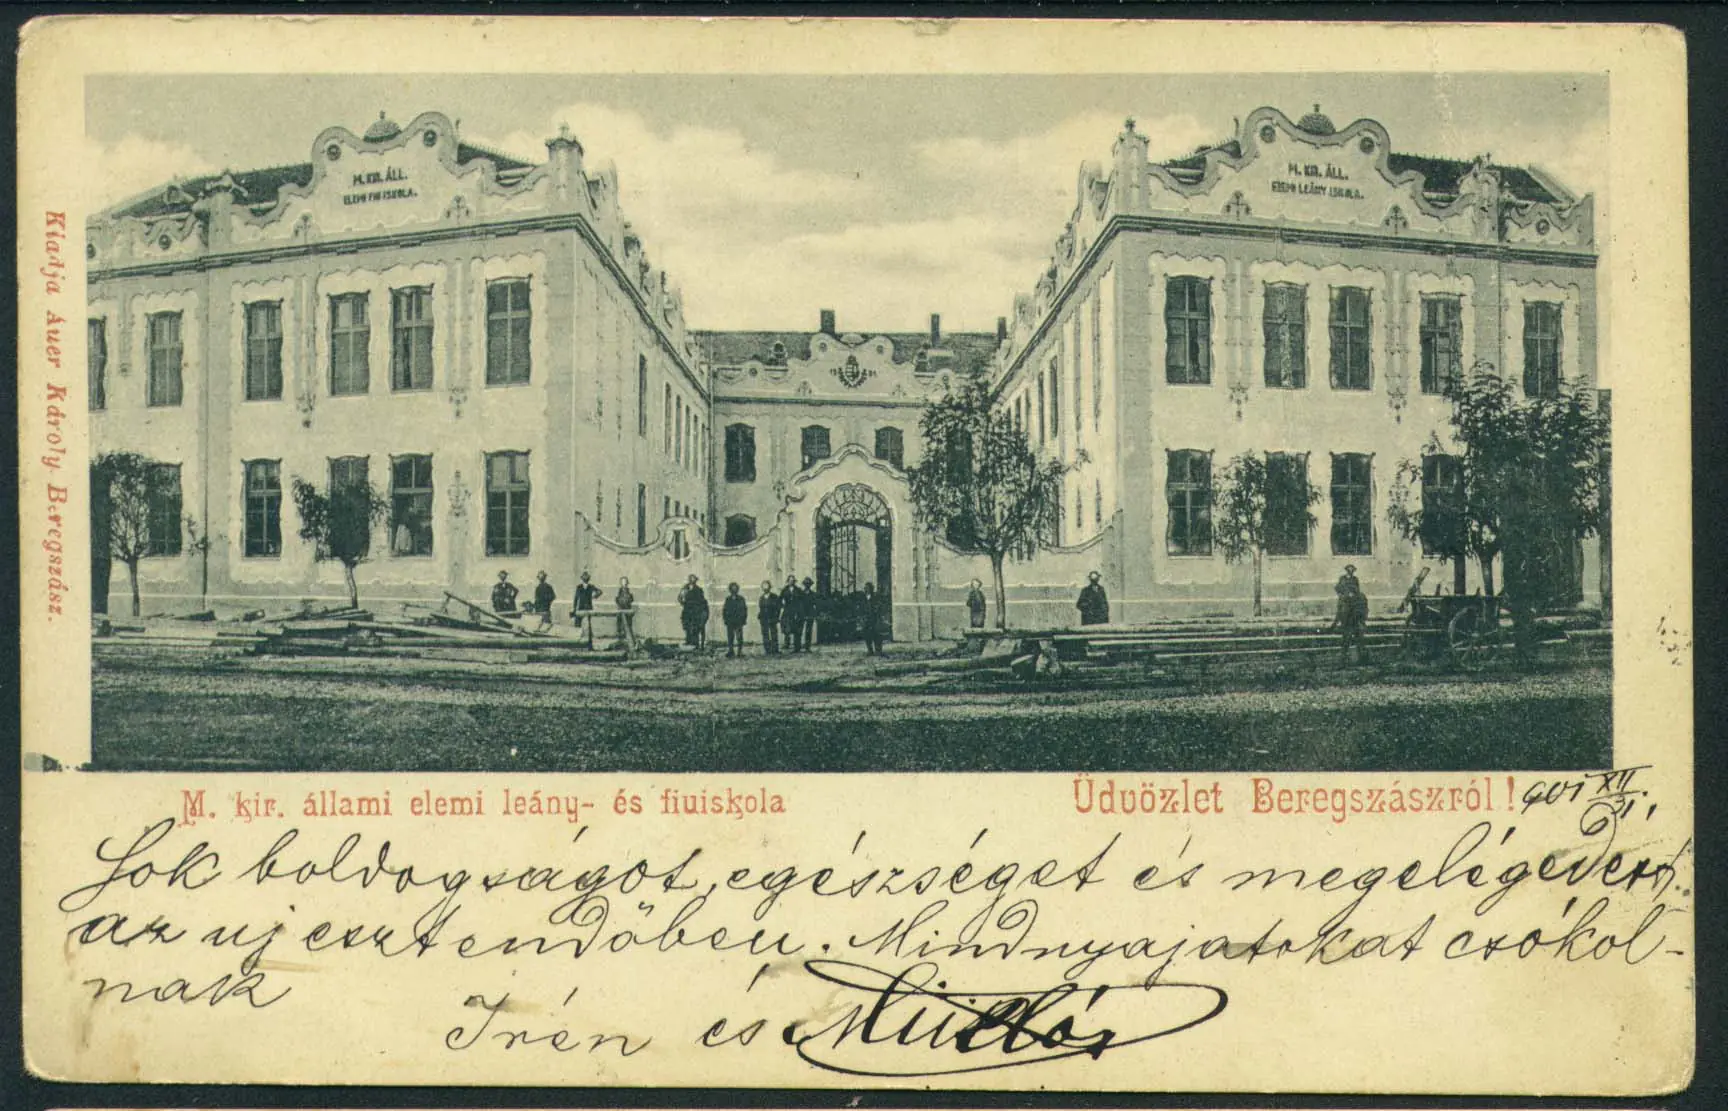 M. KIR. ÁLL.
ELEMI FIUISKOLA.
M. KIR. ÁLL.
ELEMI LEÁNY ISKOLA.
Kiadja Auer Károly Beregszász.
M. kir. állami elemi leány- és fiuiskola
Üdvözlet Beregszászról!
901 XII/31.
Sok boldogságot, egészséget és megelégedést
az uj esztendőben. Mindnyajatokat csókol-
nak
Irén és Miklós